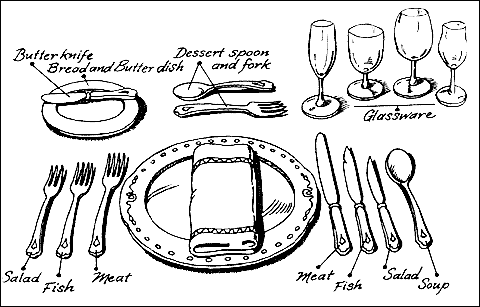 Butter knife
Bread and Butter dish
Dessert spoon
and fork
Glassware
Salad
Fish
Meat
Meat
Fish
Salad
Soup